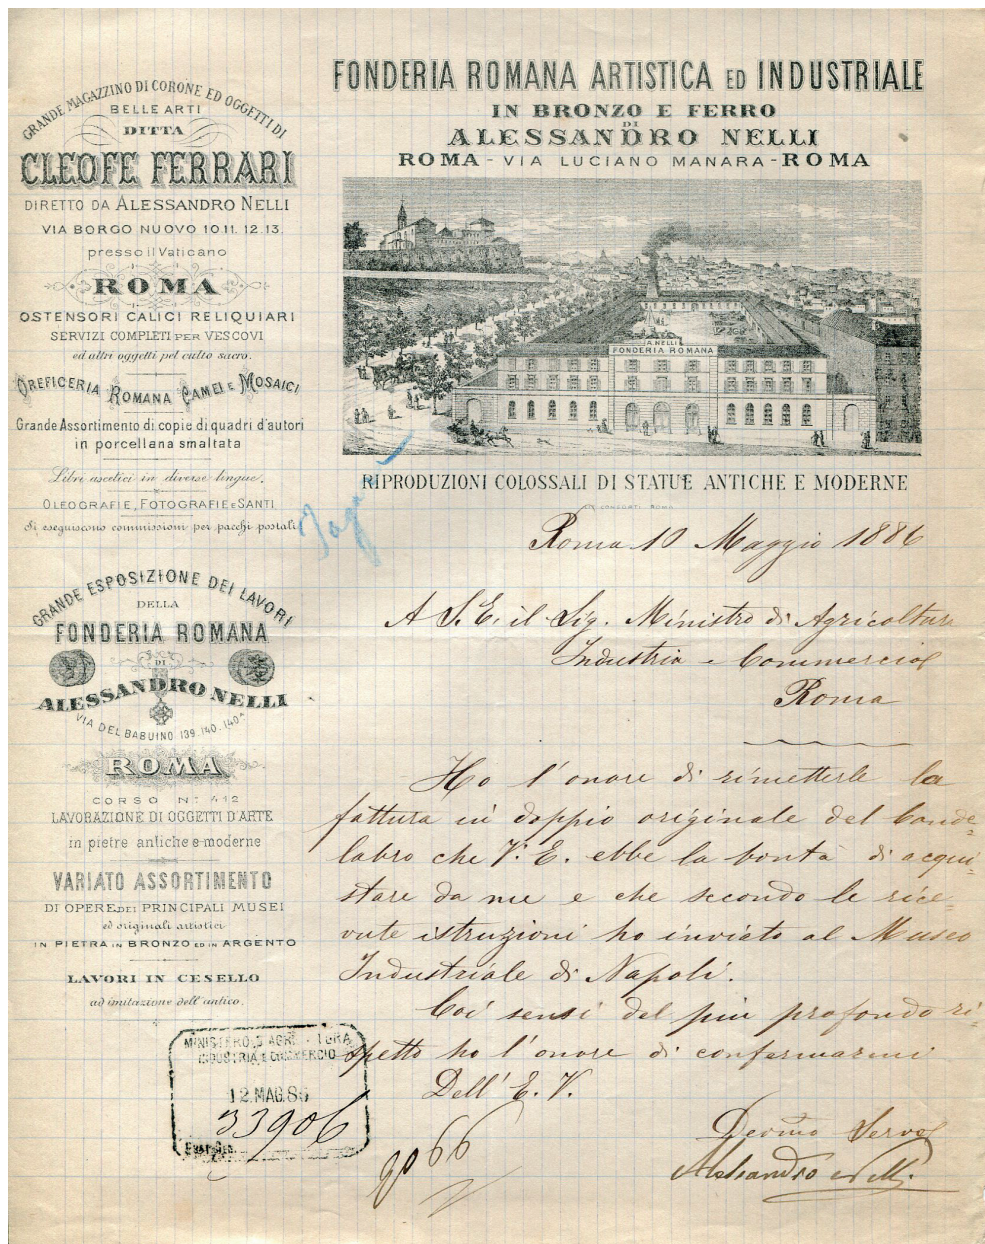 GRANDE MAGAZZINO DI CORONE ED OGGETTI DI
BELLE ARTI
DITTA
CLEOFE FERRARI
DIRETTO DA ALESSANDRO NELLI
VIA BORGO NUOVO 10.11. 12.13.
presso il Vaticano
ROMA
OSTENSORI CALICI RELIQUIARI
SERVIZI COMPLETI PER VESCOVI
ed altri oggetti pel culto sacro.
OREFICERIA ROMANA CAMEI E MOSAICI
Grande Assortimento di copie di quadri d'autori
in porcellana smaltata
Libri ascetici in diverse lingue.
OLEOGRAFIE, FOTOGRAFIE e SANTI
Si eseguiscono commissioni per pacchi postali
GRANDE ESPOSIZIONE DEI LAVORI
DELLA
FONDERIA ROMANA
DI
ALESSANDRO NELLI
VIA DEL BABUINO 139. 140. 140ᴬ
ROMA
CORSO Nº 412
LAVORAZIONE DI OGGETTI D'ARTE
in pietre antiche e moderne
VARIATO ASSORTIMENTO
DI OPERE DEI PRINCIPALI MUSEI
ed originali artistici
IN PIETRA IN BRONZO ED IN ARGENTO
LAVORI IN CESELLO
ad imitazione dell'antico.
FONDERIA ROMANA ARTISTICA ED INDUSTRIALE
IN BRONZO E FERRO
DI
ALESSANDRO NELLI
ROMA - VIA LUCIANO MANARA - ROMA
A. NELLI
FONDERIA ROMANA
RIPRODUZIONI COLOSSALI DI STATUE ANTICHE E MODERNE
CONFORTI ROMA
Roma 10 Maggio 1886
A S. E. il Sig. Ministro di Agricoltura
Industria e Commercio
Roma
Ho l'onore di rimetterle la
fattura in doppio originale del Cande=
labro che V. E. ebbe la bontà di acqui=
stare da me e che secondo le rice=
vute istruzioni ho inviato al Museo
Industriale di Napoli.
Coi sensi del più profondo ri=
spetto ho l'onore di confermarmi
Dell' E. V.
Devmo Servo
Alessandro Nelli
MINISTERO D'AGRICOLTURA
INDUSTRIA E COMMERCIO
12. MAG. 86
33906
66